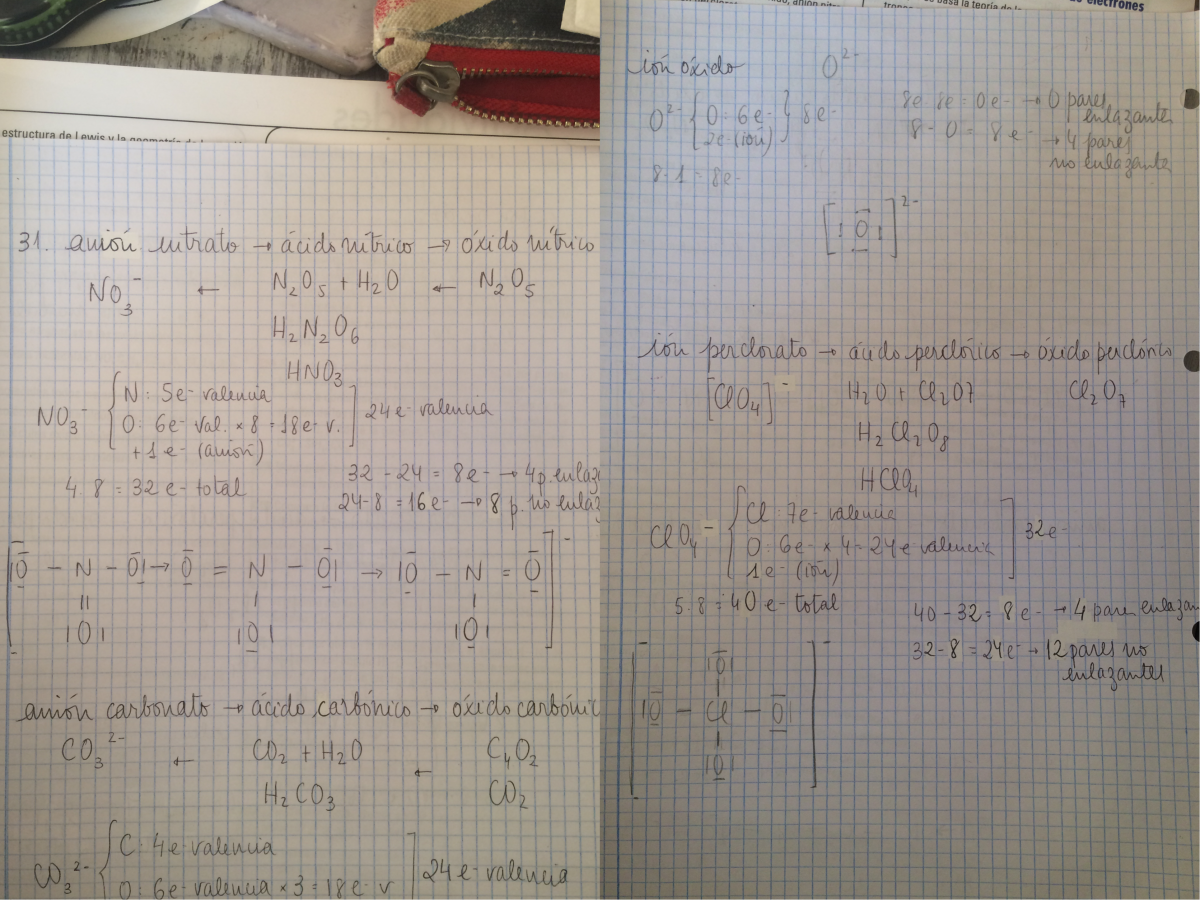 estructura de Lewis y la geometría de
31. anión nitrato → ácido nítrico → óxido nítrico
NO₃⁻ ← N₂O₅ + H₂O ← N₂O₅
H₂N₂O₆
HNO₃
NO₃⁻ { N: 5e⁻ valencia
O: 6e⁻ val. × 8 = 18e⁻ v. ] 24e⁻ valencia
+1e⁻ (anión)
4·8 = 32e⁻ total
32 - 24 = 8e⁻ → 4p. enlaz
24-8 = 16e⁻ → 8 p. no enlaz
[ |O̅ - N - O̅| → O̅ = N - O̅| → |O̅ - N = O̅ ]⁻
|| | |
|O| |O| |O|
anión carbonato → ácido carbónico → óxido carbónic
CO₃²⁻ ← CO₂ + H₂O ← C₄O₂
H₂CO₃ CO₂
CO₃²⁻ { C: 4e⁻ valencia
O: 6e⁻ valencia × 3 = 18e⁻ v ] 24e⁻ valencia
electrones
ión óxido O²⁻
O²⁻ { O: 6e⁻ } 8e⁻
2e⁻ (ión)
8·1 = 8e⁻
8e⁻ 8e⁻ = 0e⁻ → 0 pares
enlazante
8 - 0 = 8e⁻ → 4 pares
no enlazante
[ |O̅| ]²⁻
ión perclorato → ácido perclórico → óxido perclóric
[ClO₄]⁻ H₂O + Cl₂O7 Cl₂O₇
H₂Cl₂O₈
HClO₄
ClO₄⁻ { Cl: 7e⁻ valencia
O: 6e⁻ × 4 = 24e⁻ valencia ] 32e⁻
1e⁻ (ión)
5·8 = 40e⁻ total
40 - 32 = 8e⁻ → 4 pares enlazan
32-8 = 24e⁻ → 12 pares no
enlazantes
[ |O̅|
|
|O̅ - Cl - O̅| ]⁻
|
|O|